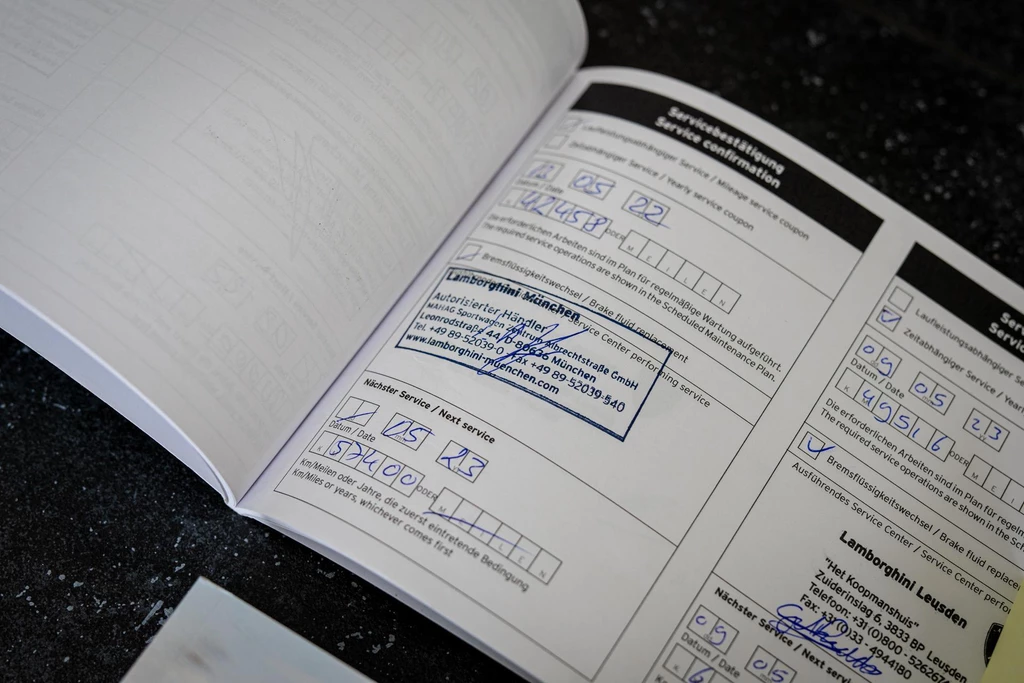 Servicebestätigung
Service confirmation
Laufleistungsabhängiger Service / Mileage service coupon
Zeitabhängiger Service / Yearly service coupon
12 05 22
Datum / Date
K 42458 ODER MEILEN
Die erforderlichen Arbeiten sind im Plan für regelmäßige Wartung aufgeführt.
The required service operations are shown in the Scheduled Maintenance Plan.
Bremsflüssigkeitswechsel / Brake fluid replacement
Service Center performing service
Lamborghini München
Autorisierter Händler
MAHAG Sportwagen Zentrum Albrechtstraße GmbH
Leonrodstraße 44 / D-80636 München
Tel. +49 89-52039-0 Fax +49 89-52039-540
www.lamborghini-muenchen.com
Nächster Service / Next service
05 23
Datum / Date
K 57400 ODER MEILEN
Km/Meilen oder Jahre, die zuerst eintretende Bedingung
Km/Miles or years, whichever comes first
Laufleistungsabhängiger
Zeitabhängiger Service
09 05 23
Datum / Date
K 49516 ODER MEI
Die erforderlichen Arbeiten sind im Plan für
The required service operations are shown in the
Bremsflüssigkeitswechsel / Brake fluid
Ausführendes Service Center / Service Center
Lamborghini Leusden
"Het Koopmanshuis"
Zuiderinslag 6, 3833 BP Leusden
Telefoon: +31 (0)800 - 526267
Fax: +31(0)33 - 4944180
Nächster Service / Next
09 05
Datum / Date
K 6